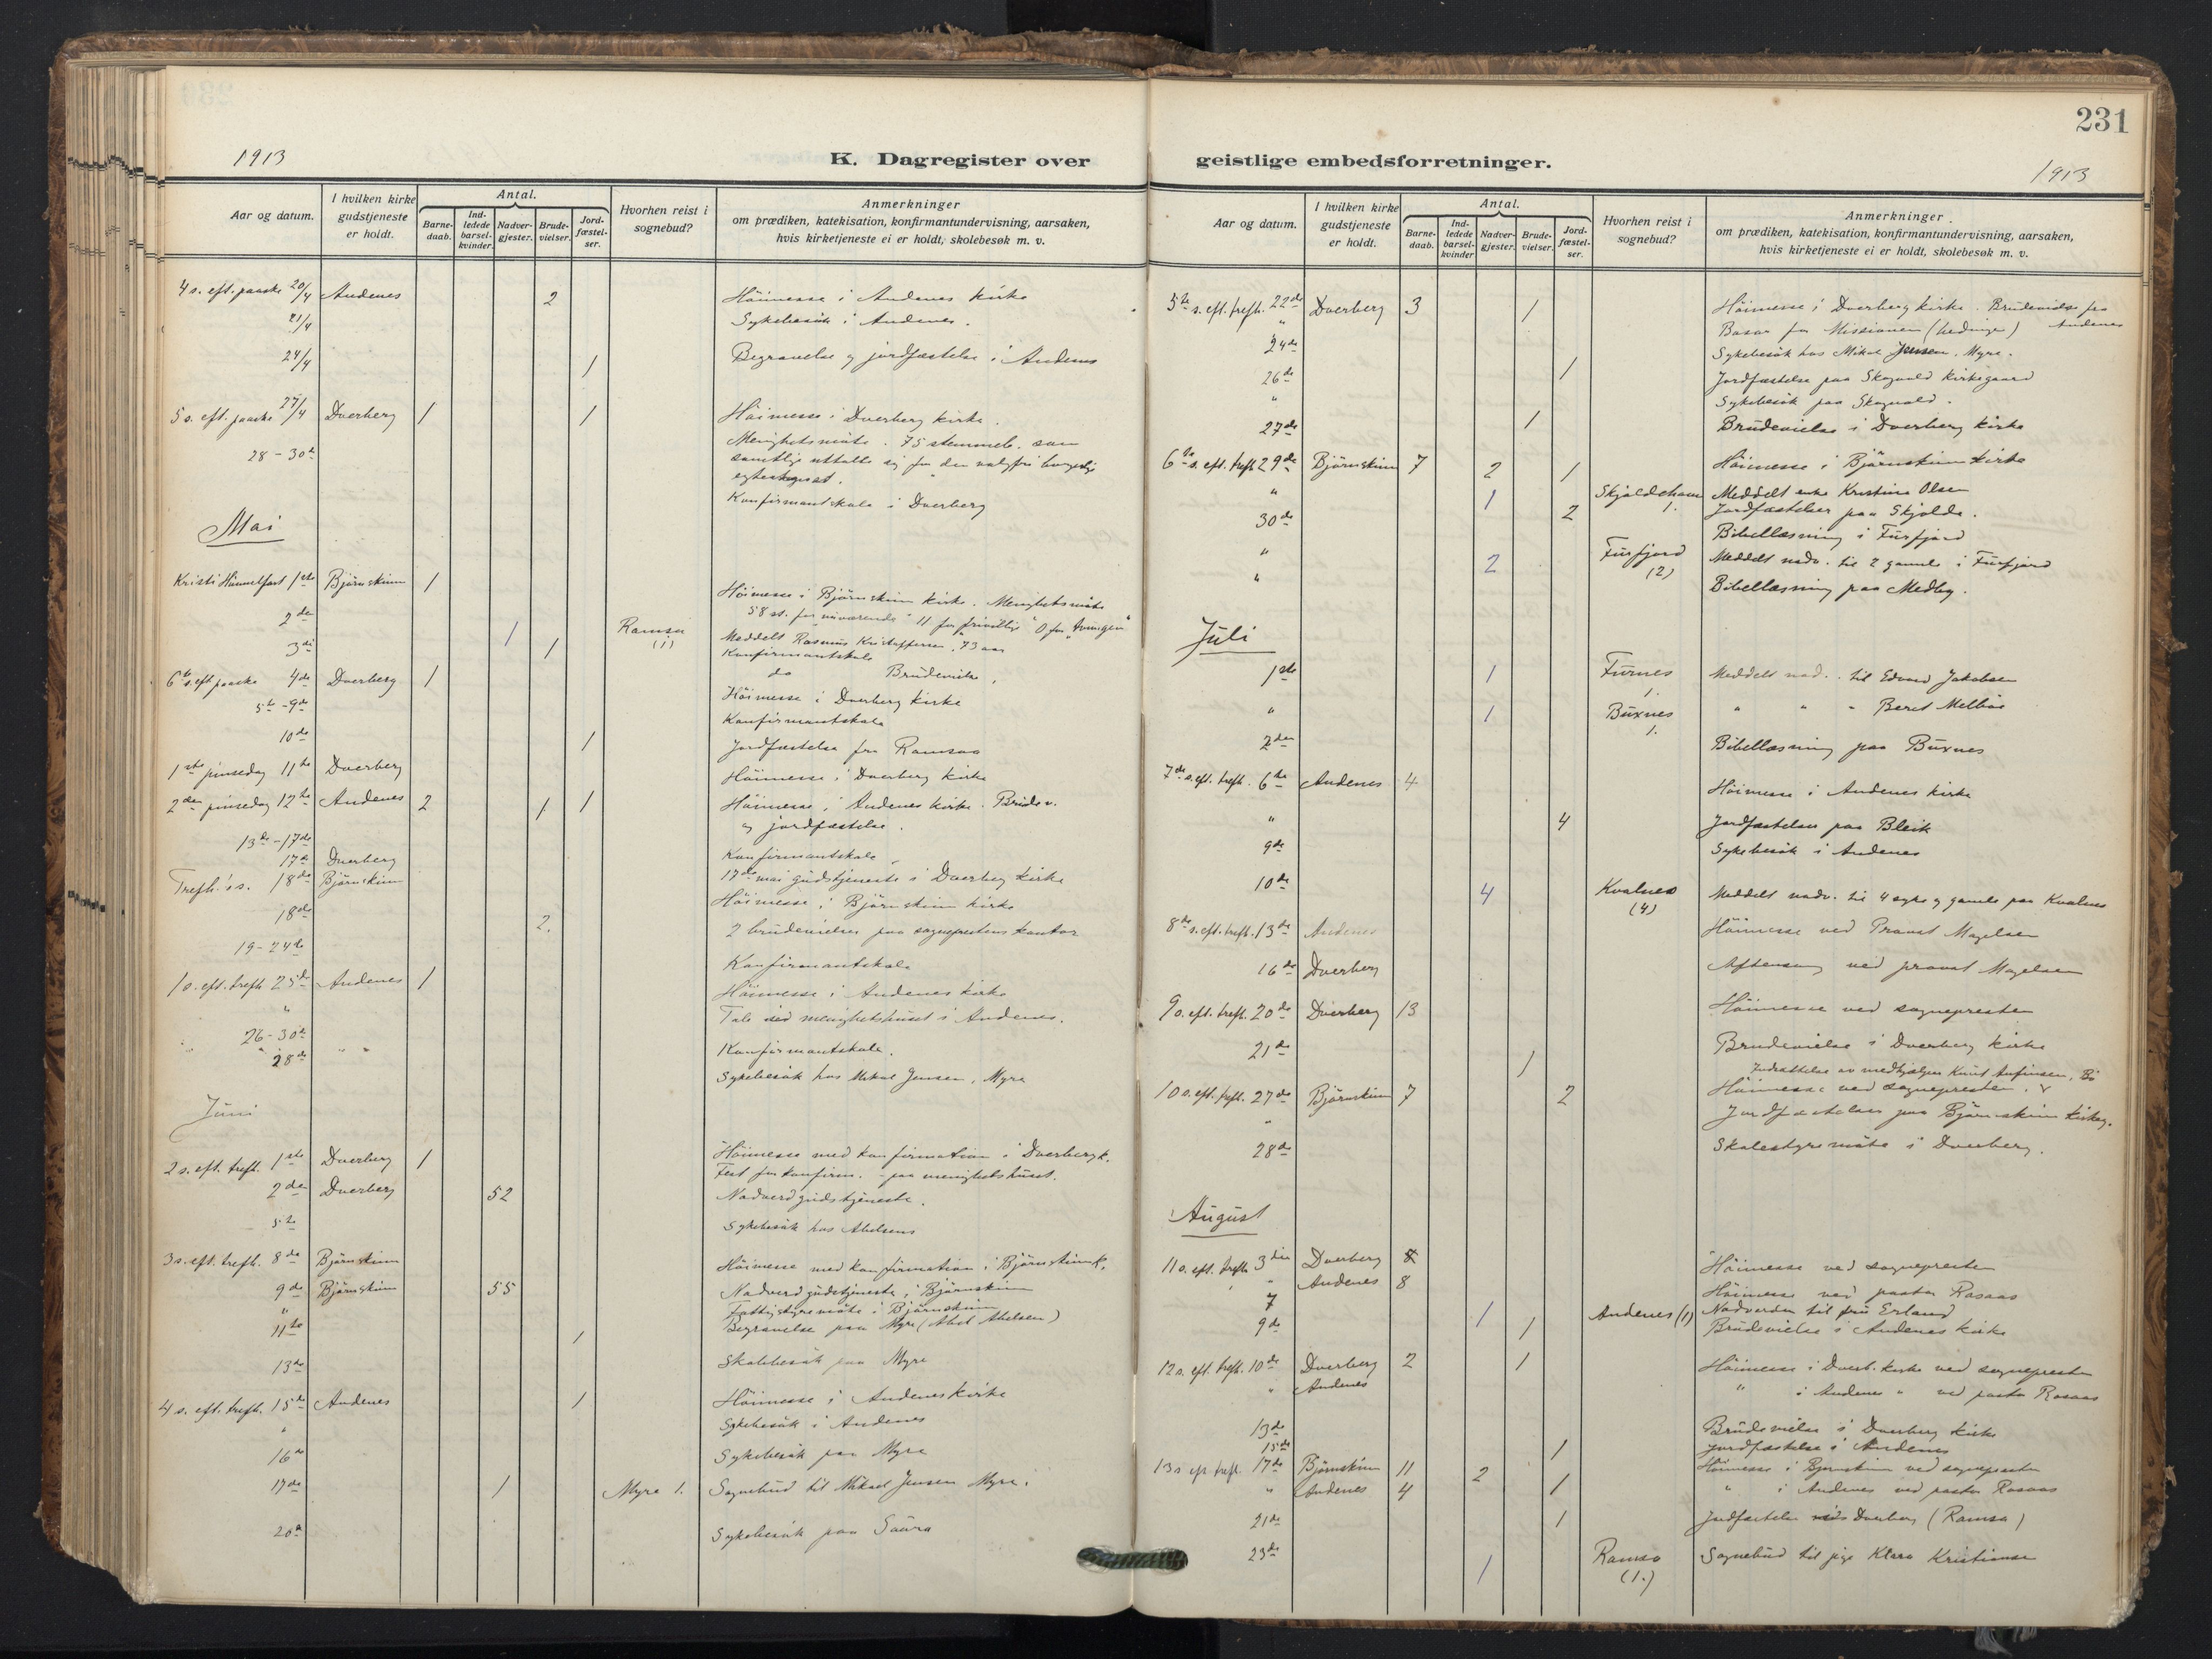 1913
K. Dagregister over
Aar og datum.
I hvilken kirke gudstjeneste er holdt.
Antal.
Barne-daab.
Ind-ledede barsel-kvinder.
Nadver-gjester.
Brude-vielser.
Jord-fæstel-ser.
Hvorhen reist i sognebud?
Anmerkninger
om prædiken, katekisation, konfirmantundervisning, aarsaken,
hvis kirketjeneste ei er holdt, skolebesøk m. v.
4 s. eft. paaske 20/4 Andenes 2 Höimesse i Andenes kirke
21/4 Sykebesök i Andenes.
24/4 1 Begravelse og jordfæstelse i Andenes
5 s. eft. paaske 27/4 Dverberg 1 1 Höimesse i Dverberg kirke.
Menighetsmöte. 75 stemmeb. som
samtlige uttalte sig for den
28 - 30te
Konfirmantskole i Dverberg
Mai
Kristi Himmelfart 1ste Björnskinn 1 Höimesse i Björnskinn kirke. Menighetsmöte
58 st. for nuværende 11 for frivillig 0 for
2den 1 Ramsa (1) Meddelt Rasmus Kristoffersen, 73 aar
Konfirmantskole
3die 1 do Brudevielse,
6te s. eft paaske 4de Dverberg 1 Höimesse i Dverberg kirke
5te - 9de Konfirmantskole
10de 1 Jordfæstelse fra Ramsaa
1ste pinsedag 11te Dverberg Höimesse i Dverberg kirke
2den pinsedag 12te Andenes 2 1 1 Höimesse i Andenes kirke. Brudev.
og jordfæstelse.
13de - 17de Konfirmantskole
17de Dverberg 17de mai gudstjeneste i Dverberg kirke
Trefh.'s s. 18de Björnskinn Höimesse i Björnskinn kirke
18de 2. 2 brudevielser paa sogneprestens kontor
19 - 24de Konfirmantskole
1 s. eft. trefh 25de Andenes 1 Höimesse i Andenes kirke
" Tale ved menighetshuset i Andenes.
26 - 30te Konfirmantskole.
28de Sykebesök hos Mikal Jensen, Myre
Juni
2 s. eft. trefh. 1ste Dverberg 1 Höimesse med konfirmation i Dverberg k.
Fest for konfirm. paa menighetshuset.
2den Dverberg 52 Nadverdgudstjeneste.
5te Sykebesök hos Abelsens
3 s. eft. trefh. 8de Björnskinn Höimesse med konfirmation i Björnskinn k.
9de Björnskinn 55 Nadverdgudstjeneste i Björnskinn
" Fattigstyremöte i Björnskinn
11te 1 Begravelse paa Myre (Abel Abelsen)
13de Skolebesök paa Myre
4 s. eft. trefh. 15de Andenes 1 Höimesse i Andenes kirke
" Sykebesök i Andenes
16de Sykebesök paa Myre
17de 1 Myre 1. Sognebud til Mikael Jensen Myre.
20de Sykebesök paa Saura
231
1913
geistlige embedsforretninger.
Aar og datum.
I hvilken kirke gudstjeneste er holdt.
Antal.
Barne-daab.
Ind-ledede barsel-kvinder
Nadver-gjester.
Brude-vielser.
Jord-fæstel-ser.
Hvorhen reist i sognebud?
Anmerkninger
om prædiken, katekisation, konfirmantundervisning, aarsaken,
hvis kirketjeneste ei er holdt, skolebesøk m. v.
5te s. eft. trefh. 22de Dverberg 3 1 Höimesse i Dverberg kirke. Brudevielse fra
" Basar for Missionen (hedninge) Andenes
24de Sykebesök hos Mikal Jensen, Myre.
26de 1 Jordfæstelse paa Skogvold kirkegaard
" Sykebesök paa Skogvold.
27de 1 Brudevielse i Dverberg kirke
6te s. eft. trefh 29de Björnskinn 7 2 1 Höimesse i Björnskinn kirke
" 1 Skjoldehavn 1. Meddelt enke Kristine Olsen
30de 2 Jordfæstelser paa Skjolde.
Bibellæsning i Furfjord
" 2 Furfjord (2) Meddelt nadv. til 2 gamle i Furfjord
" Bibellæsning paa Medby.
Juli
1ste 1 Furnes 1. Meddelt nad. til Edvard Jakobsen
" 1 Buxnes 1. " " " Beret Melböe
2den Bibellæsning paa Buxnes
7de s. eft. trefh. 6te Andenes 4 Höimesse i Andenes kirke
" 4 Jordfæstelser paa Bleik
9de Sykebesök i Andenes
10de 4 Kvalnes (4) Meddelt nadv. til 4 syke og gamle paa Kvalnes
8de s. eft. trefh. 13de Andenes Höimesse ved Provst Magelsen
16de Dverberg Aftensang ved provst Magelsen
9 s. eft. trefh. 20de Dverberg 13 Höimesse ved sognepresten
21de 1 Brudevielse i Dverberg kirke
Indsættelse av medhjælper Knut Anfinsen, Bö
10 s. eft. trefh. 27de Björnskinn 7 2 Höimesse ved sognepresten.
" Jordfæstelser paa Björnskinn kirkeg.
28de Skolestyremöte i Dverberg.
August
11 s. eft. trefh 3die Dverberg 8 Höimesse ved sognepresten
" Andenes 8 Höimesse ved pastor Rosaas
7 1 Andenes (1) Nadverden til fru Erland
9de 1 Brudevielse i Andenes kirke
12 s. eft. trefh. 10de Dverberg 2 1 Höimesse i Dverb. kirke ved sognepresten
" Andenes " i Andenes " ved pastor Rosaas
13de Brudevielse i Dverberg kirke
15de 1 Jordfæstelse i Andenes
13 s eft trefh. 17de Björnskinn 11 2 1 Höimesse i Bjornskinn ved sognepresten
" Andenes 4 1 " i Andenes ved pastor Rosaas
21de 1 Jordfæstelse Dverberg (Ramsa)
23de 1 Ramsa (1.) Sognebud til pige Klara Kristiansen